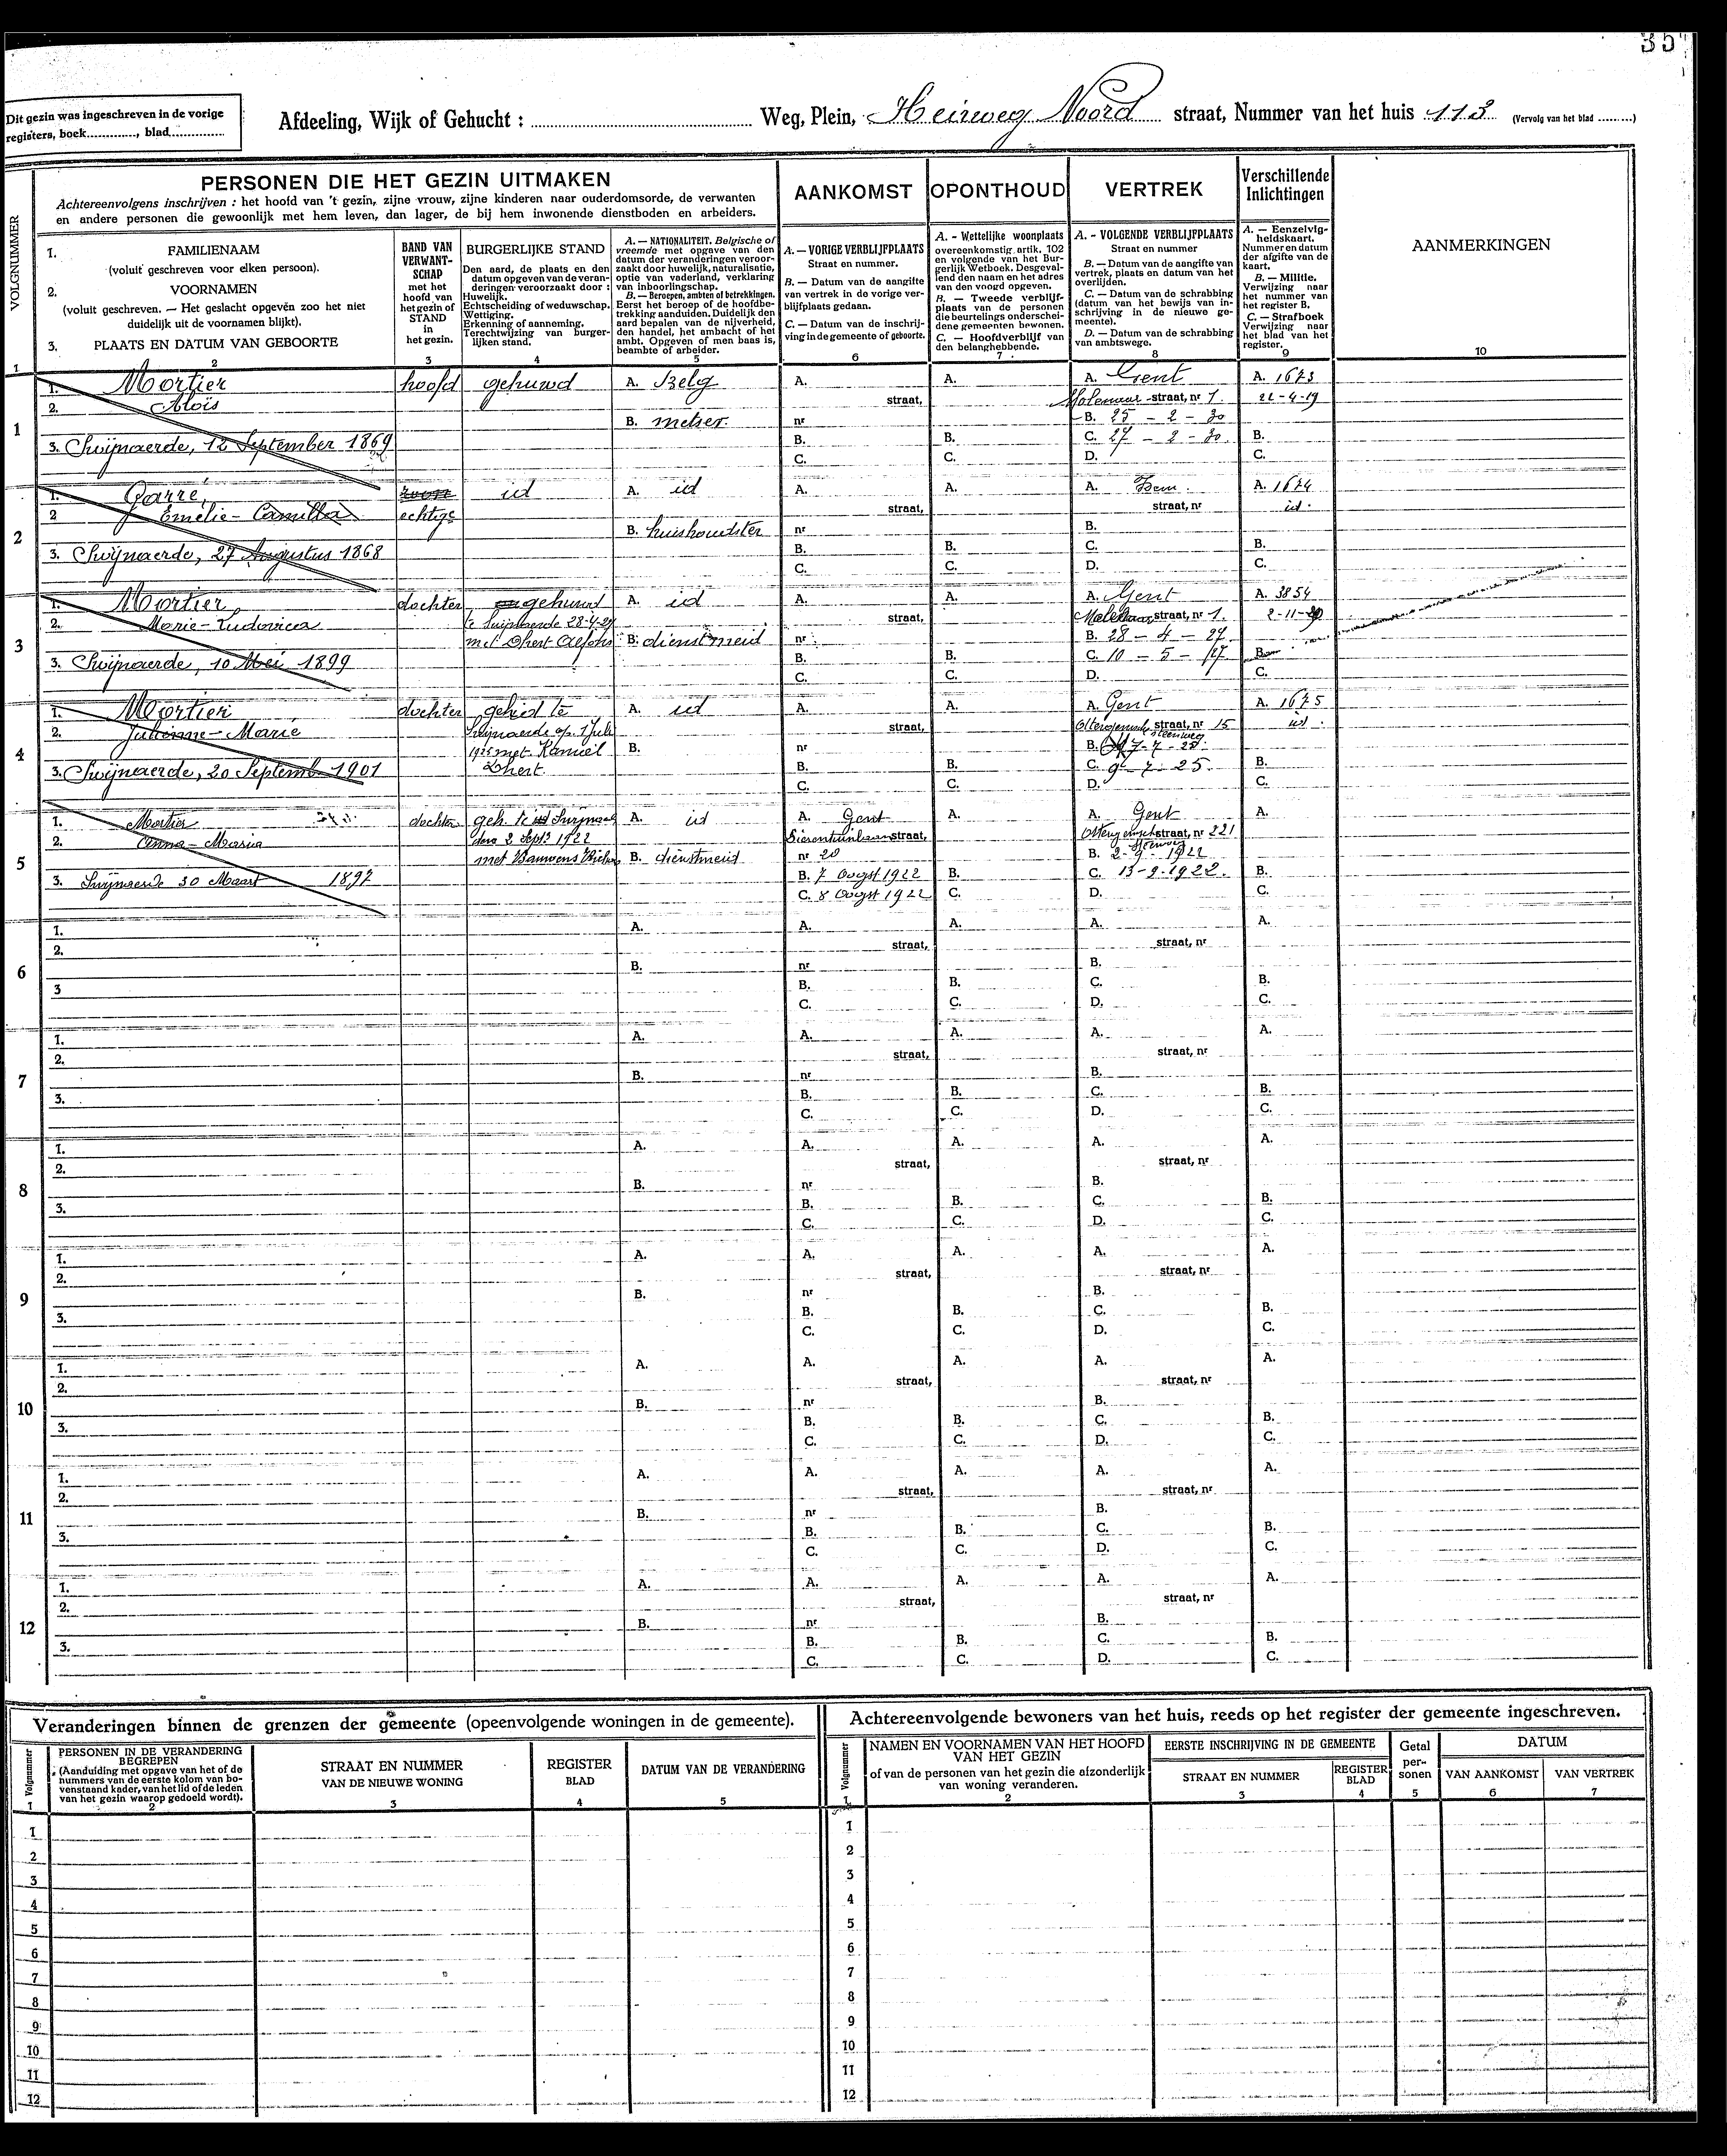 35
Dit gezin was ingeschreven in de vorige
registers, boek............, blad............
Afdeeling, Wijk of Gehucht : ............ Weg, Plein, Heirweg Noord straat, Nummer van het huis 113 (Vervolg van het blad .........)
VOLGNUMMER
PERSONEN DIE HET GEZIN UITMAKEN
Achtereenvolgens inschrijven : het hoofd van 't gezin, zijne vrouw, zijne kinderen naar ouderdomsorde, de verwanten
en andere personen die gewoonlijk met hem leven, dan lager, de bij hem inwonende dienstboden en arbeiders.
1. FAMILIENAAM
(voluit geschreven voor elken persoon).
2. VOORNAMEN
(voluit geschreven. — Het geslacht opgeven zoo het niet
duidelijk uit de voornamen blijkt).
3. PLAATS EN DATUM VAN GEBOORTE
BAND VAN
VERWANT-
SCHAP
met het
hoofd van
het gezin of
STAND
in
het gezin.
BURGERLIJKE STAND
Den aard, de plaats en den
datum opgeven van de veran-
deringen veroorzaakt door :
Huwelijk.
Echtscheiding of weduwschap.
Wettiging.
Erkenning of aanneming.
Terechtwijzing van burger-
lijken stand.
A. — NATIONALITEIT. Belgische of
vreemde met opgave van den
datum der veranderingen veroor-
zaakt door huwelijk, naturalisatie,
optie van vaderland, verklaring
van inboorlingschap.
B. — Beroepen, ambten of betrekkingen.
Eerst het beroep of de hoofdbe-
trekking aanduiden. Duidelijk den
aard bepalen van de nijverheid,
den handel, het ambacht of het
ambt. Opgeven of men baas is,
beambte of arbeider.
AANKOMST
A. — VORIGE VERBLIJFPLAATS
Straat en nummer.
B. — Datum van de aangifte
van vertrek in de vorige ver-
blijfplaats gedaan.
C. — Datum van de inschrij-
ving in de gemeente of geboorte.
OPONTHOUD
A. - Wettelijke woonplaats
overeenkomstig artik. 102
en volgende van het Bur-
gerlijk Wetboek. Desgeval-
lend den naam en het adres
van den voogd opgeven.
B. — Tweede verblijf-
plaats van de personen
die beurtelings onderschei-
dene gemeenten bewonen.
C. — Hoofdverblijf van
den belanghebbende.
VERTREK
A. - VOLGENDE VERBLIJFPLAATS
Straat en nummer
B. — Datum van de aangifte van
vertrek, plaats en datum van het
overlijden.
C. — Datum van de schrabbing
(datum van het bewijs van in-
schrijving in de nieuwe ge-
meente).
D. — Datum van de schrabbing
van ambtswege.
Verschillende
Inlichtingen
A. — Eenzelvig-
heidskaart.
Nummer en datum
der afgifte van de
kaart.
B. — Militie.
Verwijzing naar
het nummer van
het register B.
C. — Strafboek
Verwijzing naar
het blad van het
register.
AANMERKINGEN
1 2 3 4 5 6 7 8 9 10
1
1. Mortier hoofd gehuwd A. Belg A. A. A. Gent A. 1673
2. Aloïs straat, Molenaar -straat, nr 1. 22-4-19
B. metser. nr B. 25 - 2 - 30
3. Swijnaerde, 12 September 1869 B. B. C. 27 - 2 - 30. B.
C. C. D. C.
2
1. Garré, id A. id A. A. A. Idem. A. 1674
2 Emelie - Camilla echtge straat, straat, nr id.
B. huishoudster nr B.
3. Swijnaerde, 27 Augustus 1868 B. B. C. B.
C. C. D. C.
3
1. Mortier, dochter gehuwd A. id A. A. A. Gent A. 3854
2. Marie - Ludovica te Swijnaerde 28-4-27 straat, Molenaar straat, nr 1. 2-11-
met Dhert Alfons B. dienstmeid nr B. 28 - 4 - 27
3. Swijnaerde, 10 Mei 1899 B. B. C. 10 - 5 - 27 B.
C. C. D. C.
4
1. Mortier dochter gehuwd te A. id A. A. A. Gent A. 1675
2. Julienne - Marie Swijnaerde op 1 Juli straat, straat, nr 15 id.
1925 met Kamiel B. nr steenweg B. 7-7-25.
3. Swijnaerde, 20 Septemb 1901 Dhert. B. B. C. 9-7-25. B.
C. C. D. C.
5
1. Mortier dochter geh. te Swijnaerde A. id A. Gent A. A. Gent A.
2. Anna - Maria den 2 Sept. 1922 straat, straat, nr 221
met B. dienstmeid nr 20 steenweg B. 2-9-1922
3. Swijnaerde 30 Maart 1897 B. 7 Oogst 1922 B. C. 13-9-1922. B.
C. 8 Oogst 1922 C. D. C.
6
1. A. A. A. A. A.
2. straat, straat, nr
B. nr B.
3 B. B. C. B.
C. C. D. C.
7
1. A. A. A. A. A.
2. straat, straat, nr
B. nr B.
3. B. B. C. B.
C. C. D. C.
8
1. A. A. A. A. A.
2. straat, straat, nr
B. nr B.
3. B. B. C. B.
C. C. D. C.
9
1. A. A. A. A. A.
2. straat, straat, nr
B. nr B.
3. B. B. C. B.
C. C. D. C.
10
1. A. A. A. A. A.
2. straat, straat, nr
B. nr B.
3. B. B. C. B.
C. C. D. C.
11
1. A. A. A. A. A.
2. straat, straat, nr
B. nr B.
3. B. B. C. B.
C. C. D. C.
12
1. A. A. A. A. A.
2. straat, straat, nr
B. nr B.
3. B. B. C. B.
C. C. D. C.
Veranderingen binnen de grenzen der gemeente (opeenvolgende woningen in de gemeente).
Volgnummer
PERSONEN IN DE VERANDERING
BEGREPEN
(Aanduiding met opgave van het of de
nummers van de eerste kolom van bo-
venstaand kader, van het lid of de leden
van het gezin waarop gedoeld wordt).
STRAAT EN NUMMER
VAN DE NIEUWE WONING
REGISTER
BLAD
DATUM VAN DE VERANDERING
1 2 3 4 5
1
2
3
4
5
6
7
8
9
10
11
12
Achtereenvolgende bewoners van het huis, reeds op het register der gemeente ingeschreven.
Volgnummer
NAMEN EN VOORNAMEN VAN HET HOOFD
VAN HET GEZIN
of van de personen van het gezin die afzonderlijk
van woning veranderen.
EERSTE INSCHRIJVING IN DE GEMEENTE
STRAAT EN NUMMER
REGISTER
BLAD
Getal
per-
sonen
DATUM
VAN AANKOMST
VAN VERTREK
1 2 3 4 5 6 7
1
2
3
4
5
6
7
8
9
10
11
12